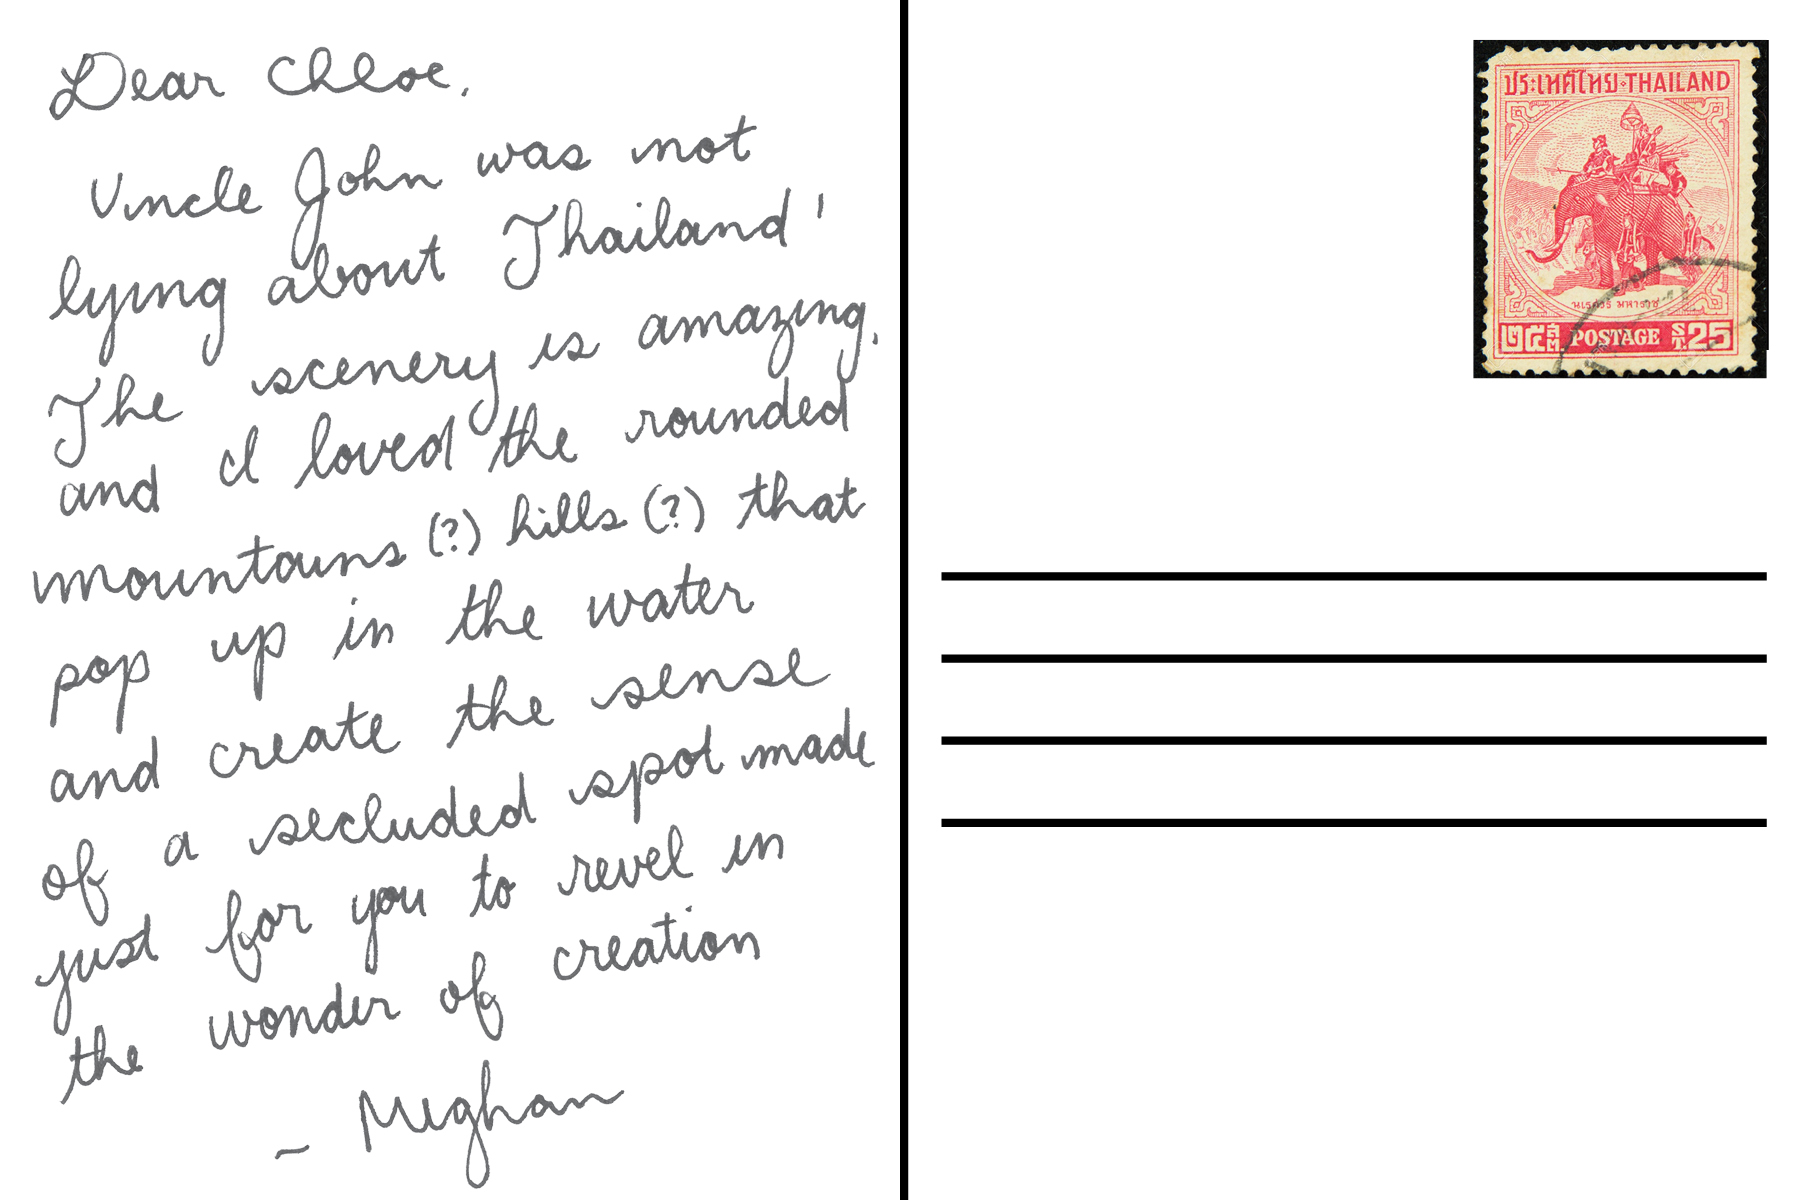 Dear Chloe,
Uncle John was not
lying about Thailand!
The scenery is amazing,
and I loved the rounded
mountains (?) hills (?) that
pop up in the water
and create the sense
of a secluded spot made
just for you to revel in
the wonder of creation
~ Meghan
ประเทศไทย·THAILAND
นเรศวร มหาราช
๒๕ ส.ต. POSTAGE ST. 25